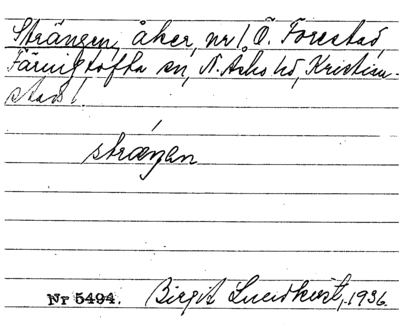 Strängen, åker, nr 1 Ö. Forestad,
Färingtofta sn, N. Åsbo hd, Kristian-
stads l.
strængen
Nr 5494. Birgit Lundkvist, 1936.